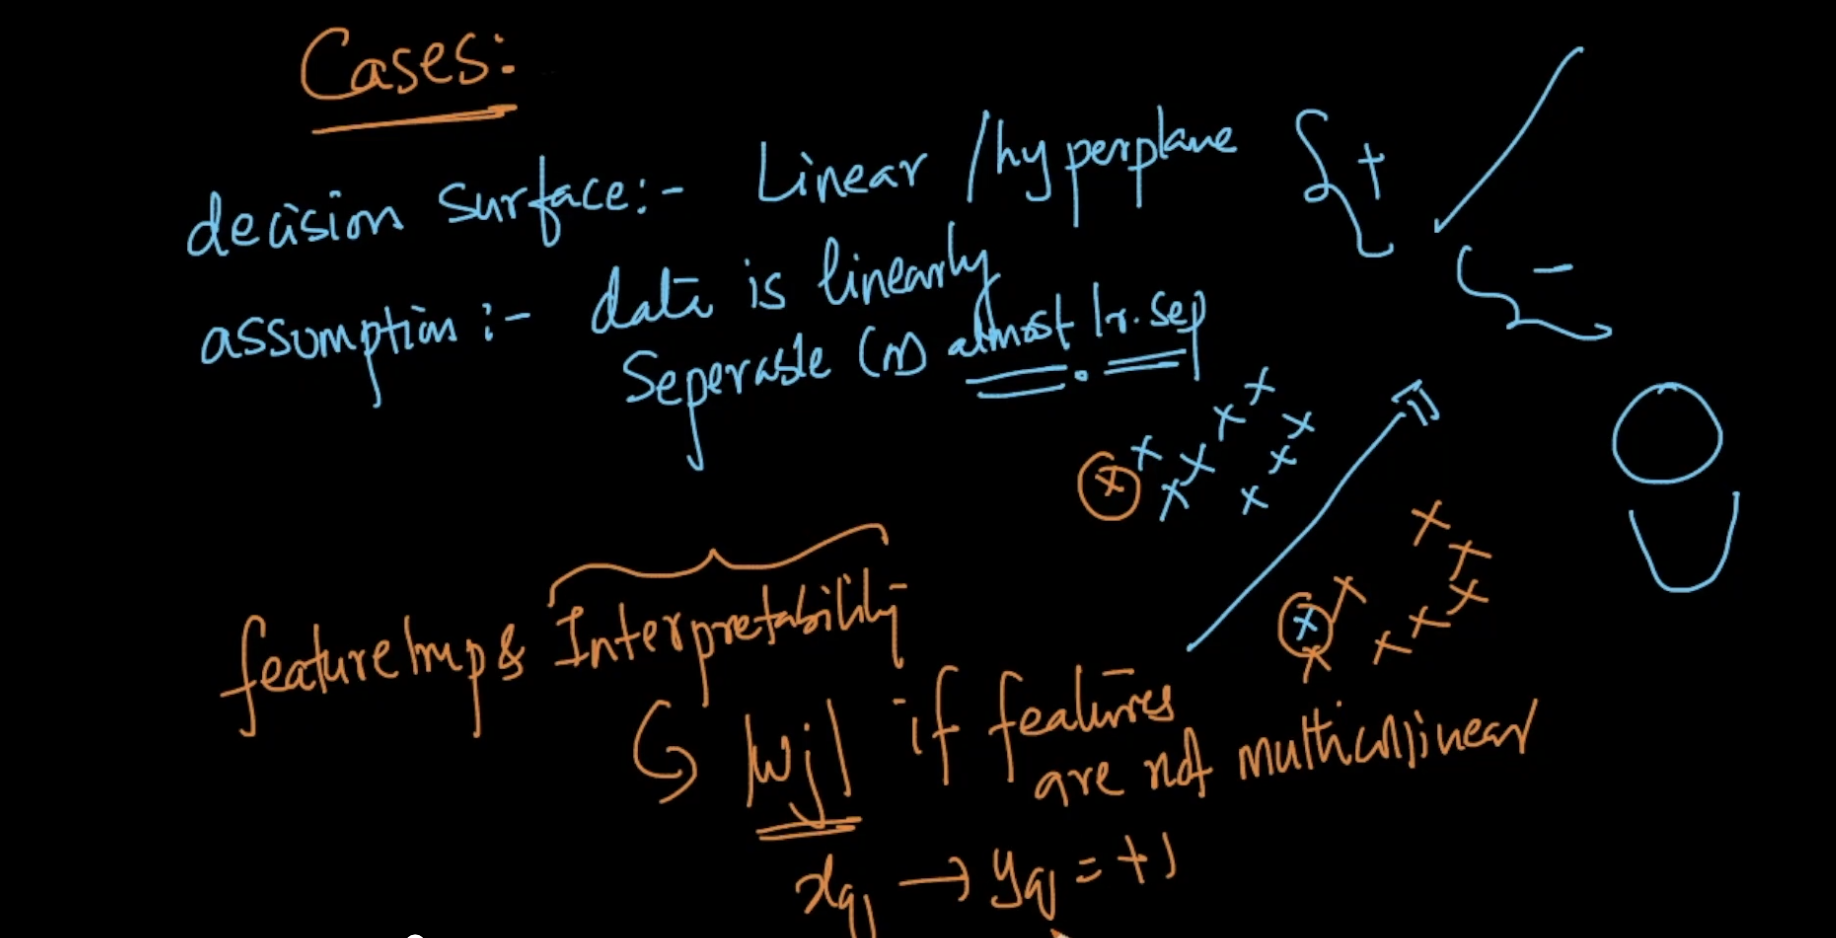 Cases:
decision surface:- Linear / hyperplane + -
assumption :- data is linearly
Seperable (or) almost lr. sep
feature Imp & Interpretability
|wj| if features
are not multicollinear
xq → yq = +1